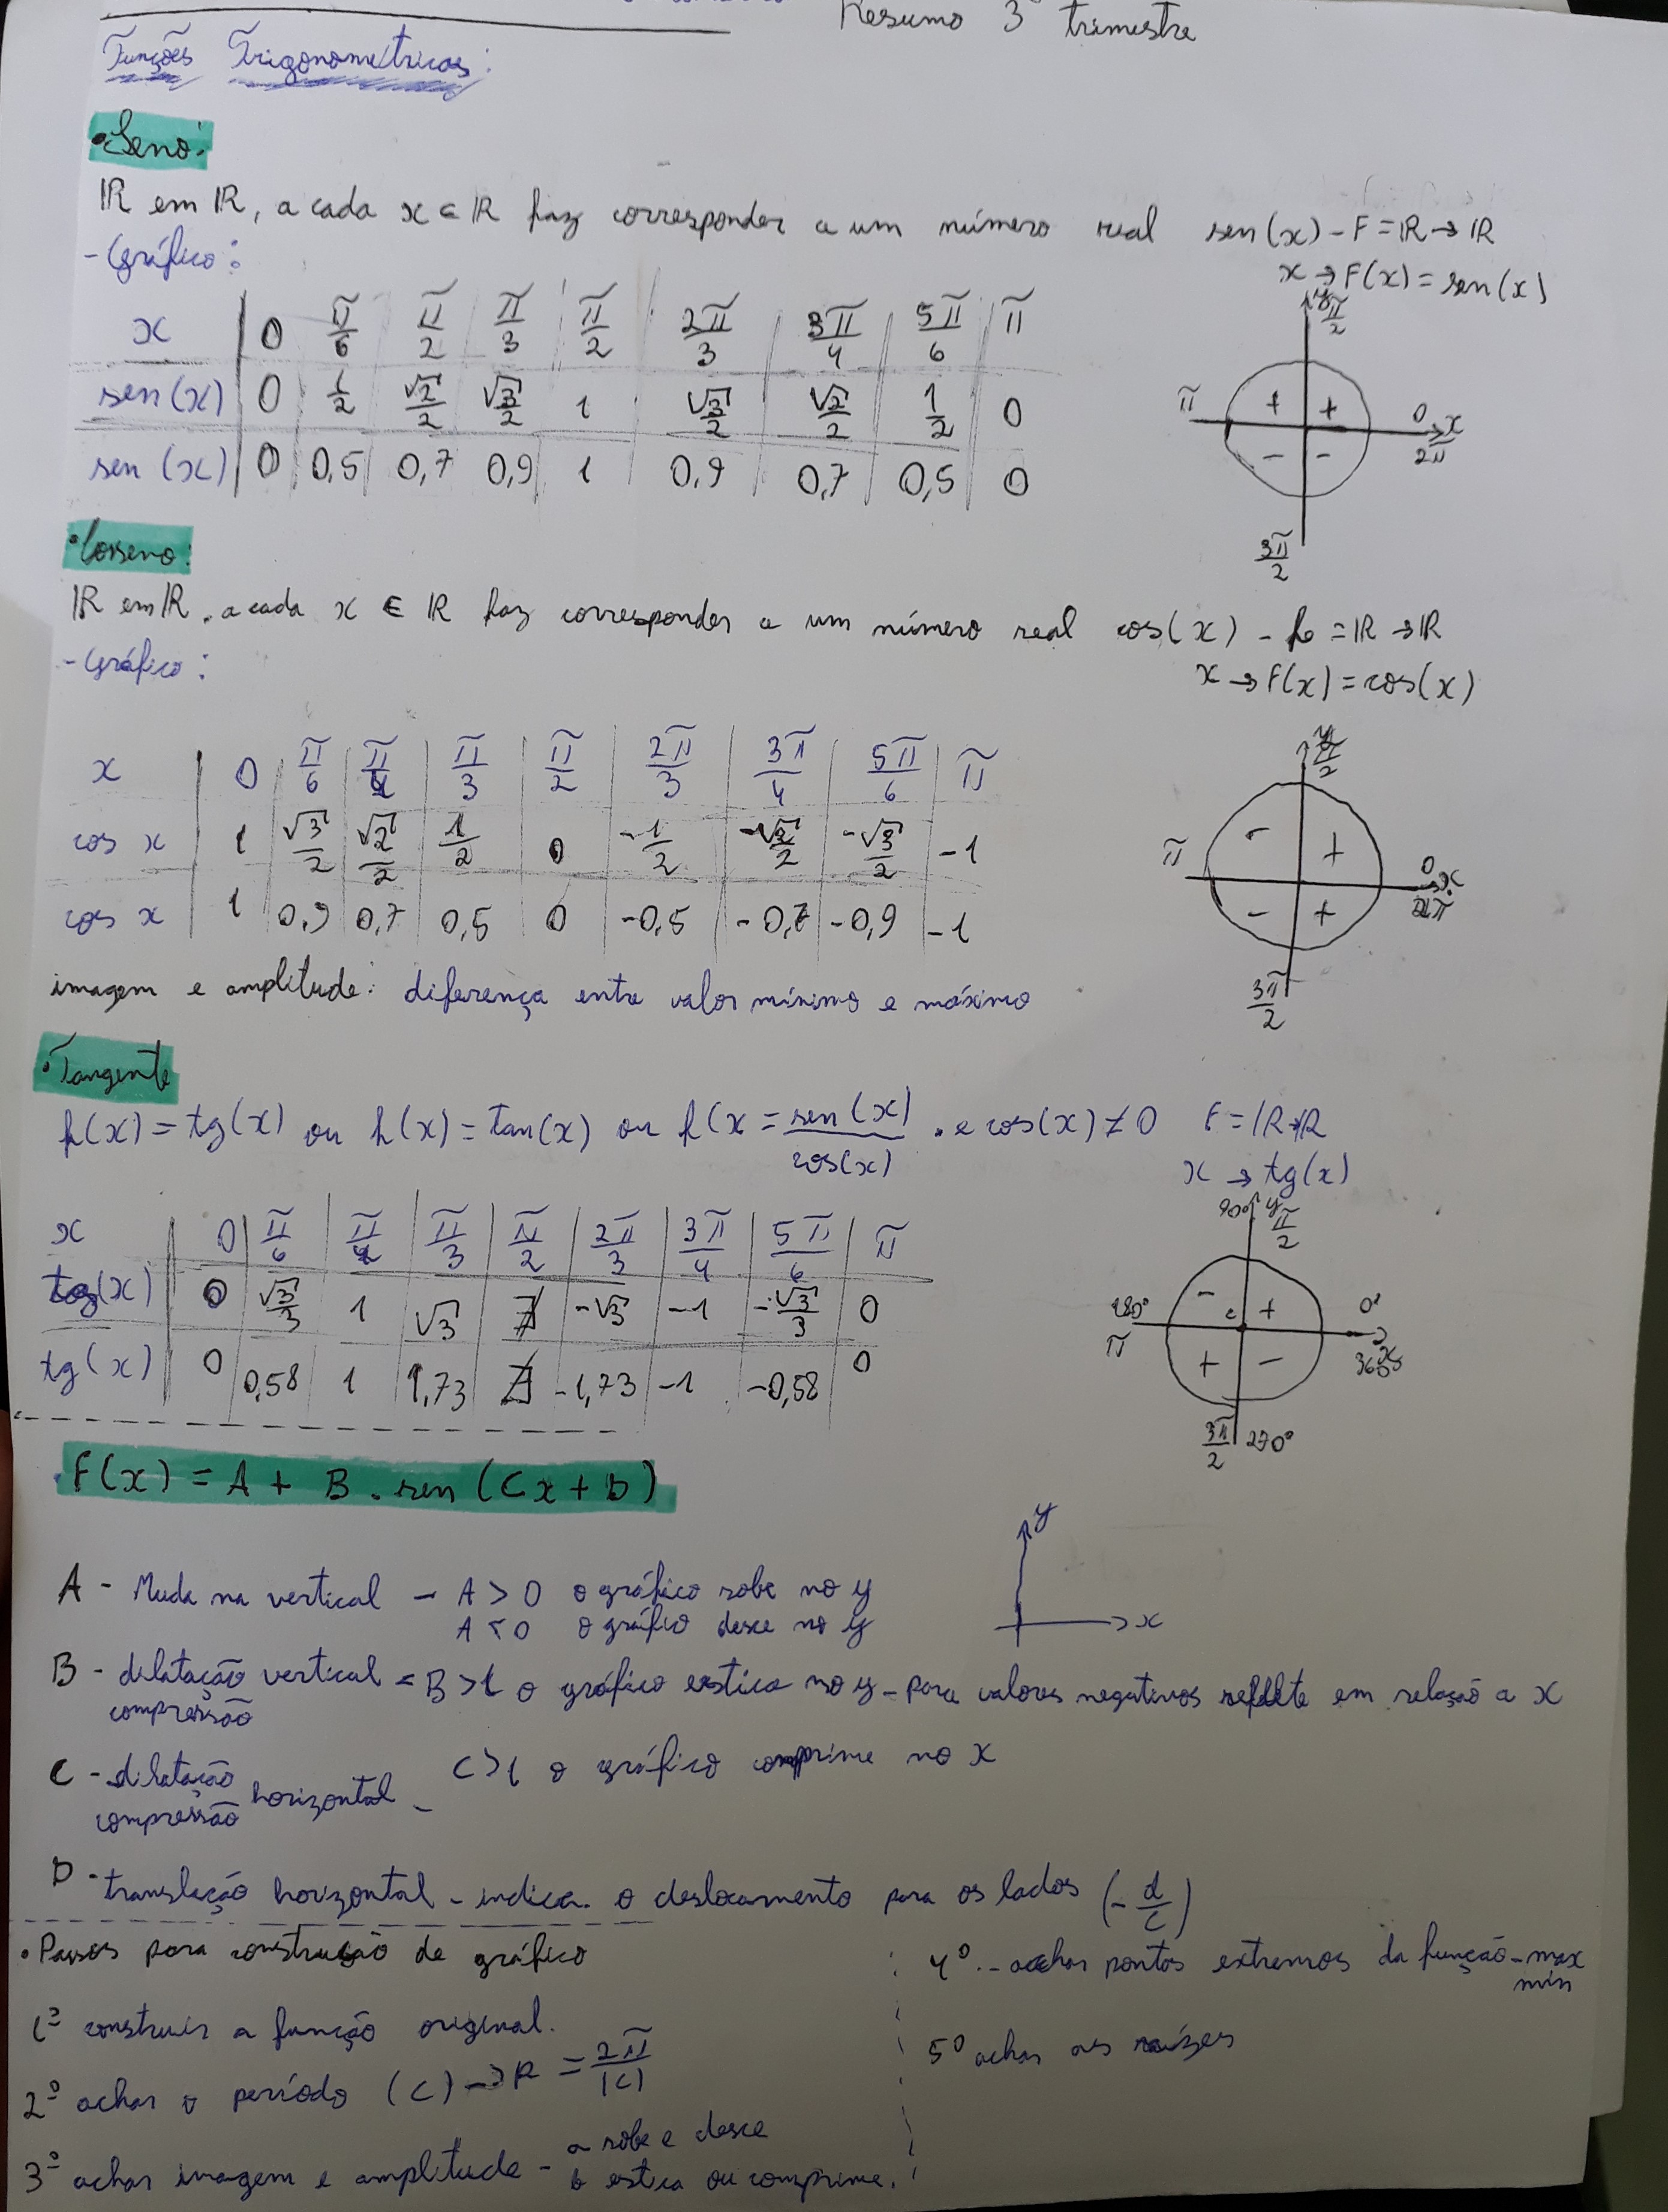 Resumo 3º trimestre
Funções Trigonométricas:
• Seno:
IR em IR, a cada x ∈ IR faz corresponder a um número real sen(x) - F = IR → IR
x → F(x) = sen(x)
- Gráfico:
x | 0 | π/6 | π/2 | π/3 | π/2 | 2π/3 | 3π/4 | 5π/6 | π
sen(x) | 0 | 1/2 | √2/2 | √3/2 | 1 | √3/2 | √2/2 | 1/2 | 0
sen(x) | 0 | 0,5 | 0,7 | 0,9 | 1 | 0,9 | 0,7 | 0,5 | 0
y π/2
+ +
π 0 x 2π
- -
3π/2
• Cosseno:
IR em IR, a cada x ∈ IR faz corresponder a um número real cos(x) - f = IR → IR
x → F(x) = cos(x)
- Gráfico:
x | 0 | π/6 | π/4 | π/3 | π/2 | 2π/3 | 3π/4 | 5π/6 | π
cos x | 1 | √3/2 | √2/2 | 1/2 | 0 | -1/2 | -√2/2 | -√3/2 | -1
cos x | 1 | 0,9 | 0,7 | 0,5 | 0 | -0,5 | -0,7 | -0,9 | -1
y π/2
- +
π 0 x 2π
- +
3π/2
imagem e amplitude: diferença entre valor mínimo e máximo
• Tangente
f(x) = tg(x) ou f(x) = tan(x) ou f(x = sen(x)/cos(x) . e cos(x) ≠ 0 F = IR → IR
x → tg(x)
x | 0 | π/6 | π/4 | π/3 | π/2 | 2π/3 | 3π/4 | 5π/6 | π
tg(x) | 0 | √3/3 | 1 | √3 | ∄ | -√3 | -1 | -√3/3 | 0
tg(x) | 0 | 0,58 | 1 | 1,73 | ∄ | -1,73 | -1 | -0,58 | 0
90° y π/2
- +
180° π 0° x 360°
+ -
3π/2 270°
• F(x) = A + B . sen (Cx + D)
y
x
A - Muda na vertical - A > 0 o gráfico sobe no y
A < 0 o gráfico desce no y
B - dilatação vertical = B > 1 o gráfico estica no y - para valores negativos reflete em relação a x
compressão
C - dilatação horizontal - C > 1 o gráfico comprime no x
compressão
D - translação horizontal - indica o deslocamento para os lados (- d/c)
• Passos para construção de gráfico
1º construir a função original.
2º achar o período (C) → P = 2π/|C|
3º achar imagem e amplitude - a sobe e desce
b estica ou comprime.
4º - achar pontos extremos da função - max
min
5º achar as raízes